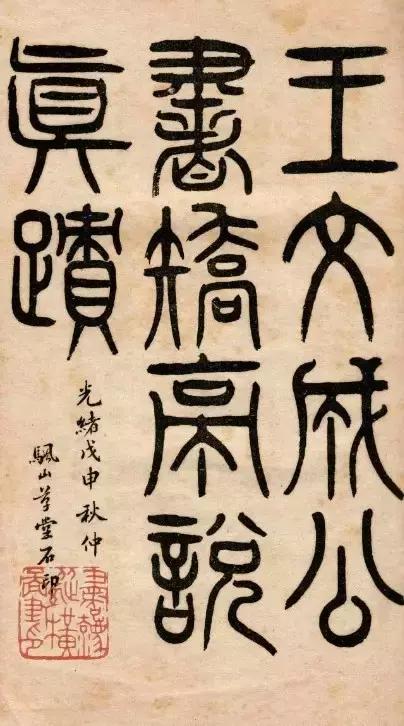 王文成公
書矯亭說
眞蹟
光緒戊申秋仲
颿山草堂石印